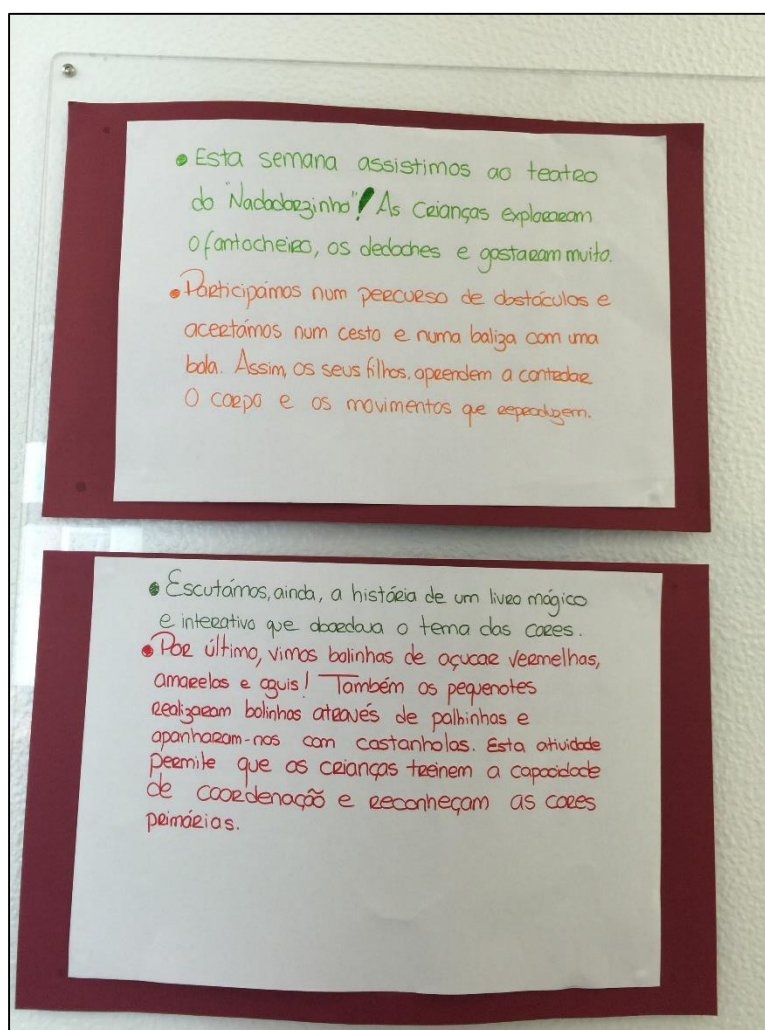 • Esta semana assistimos ao teatro
do "Nadadorzinho"! As crianças exploraram
o fantocheiro, os dedoches e gostaram muito.
• Participámos num percurso de obstáculos e
acertámos num cesto e numa baliza com uma
bola. Assim, os seus filhos, aprendem a controlar
o corpo e os movimentos que reproduzem.
• Escutámos, ainda, a história de um livro mágico
e interativo que abordava o tema das cores.
• Por último, vimos bolinhas de açucar vermelhas,
amarelas e azuis! Também os pequenotes
realizaram bolinhas através de palhinhas e
apanharam-nas com castanholas. Esta atividade
permite que as crianças treinem a capacidade
de coordenação e reconheçam as cores
primárias.